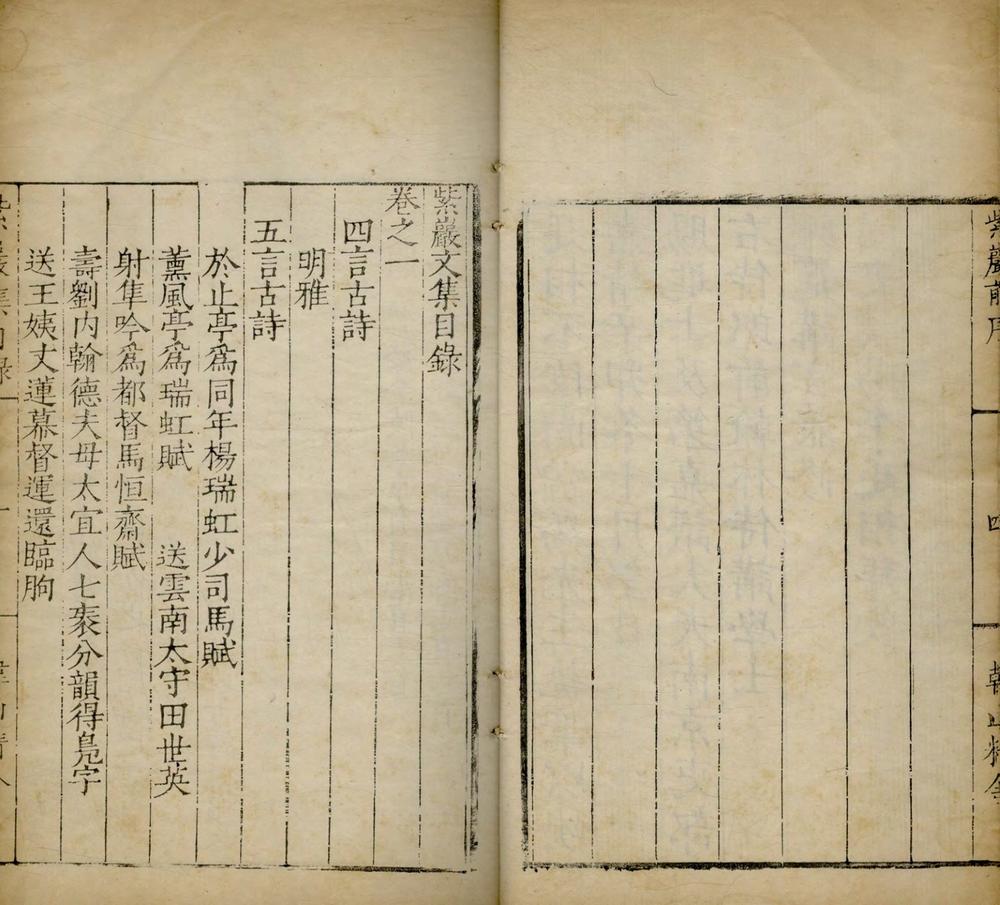 紫巖前序
四
紫巖文集目錄
卷之一
四言古詩
明雅
五言古詩
於止亭爲同年楊瑞虹少司馬賦
薰風亭爲瑞虹賦 送雲南太守田世英
射隼吟爲都督馬恒齋賦
壽劉內翰德夫母太宜人七袠分韻得鳧字
送王姨丈蓮幕督運還臨朐
紫巖集目錄
一